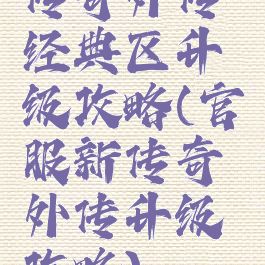 传奇外传
经典区升
级攻略(官
服新传奇
外传升级
攻略)